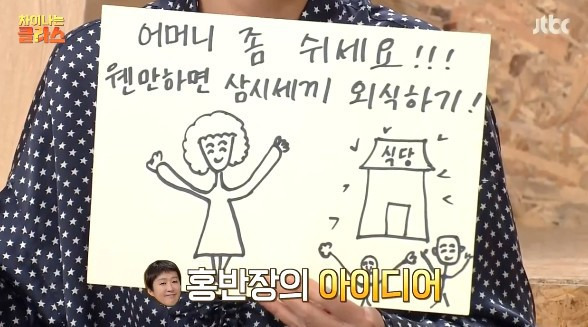 차이나는
클라스
jtbc
어머니 좀 쉬세요!!!
웬만하면 삼시세끼 외식하기!
식당
홍반장의 아이디어